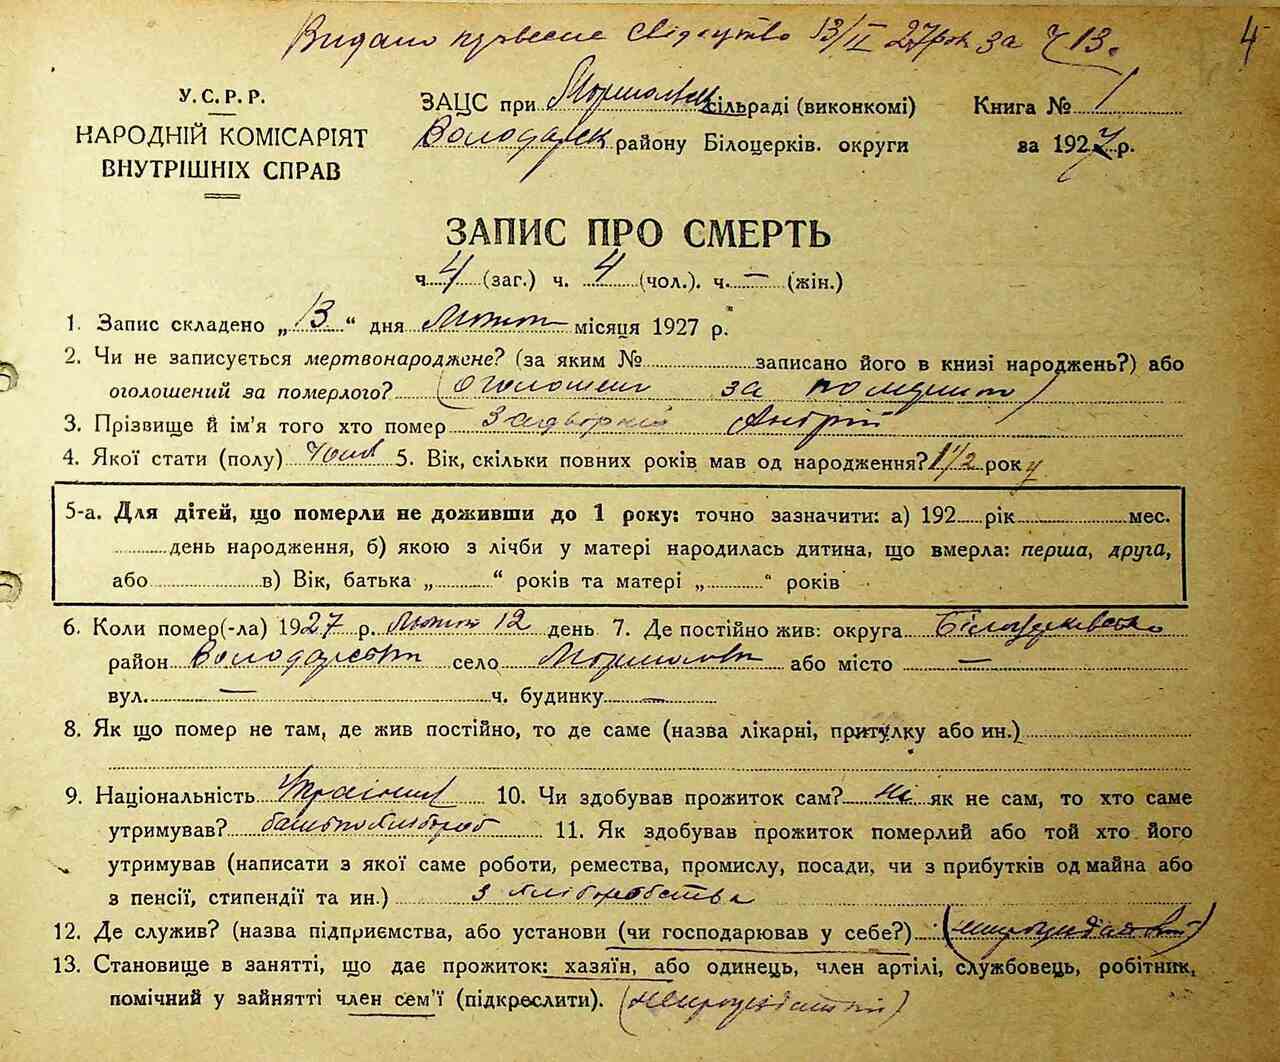 Видано свідоцтво 13/II 27 рок за ч 13.
4
У.С.Р.Р.
НАРОДНІЙ КОМІСАРІЯТ
ВНУТРІШНІХ СПРАВ
ЗАЦС при сільраді (виконкомі)
Володарск району Білоцерків. округи
Книга № 1
за 1927 р.
ЗАПИС ПРО СМЕРТЬ
ч. 4 (заг.) ч. 4 (чол.). ч. — (жін.)
1. Запис складено „ 13 “ дня Лютого місяця 1927 р.
2. Чи не записується мертвонароджене? (за яким № записано його в книзі народжень?) або
оголошений за померлого? (оголошен за померлого)
3. Прізвище й ім'я того хто помер Задворній Андрій
4. Якої стати (полу) Чол 5. Вік, скільки повних років мав од народження? 1 1/2 року
5-а. Для дітей, що померли не доживши до 1 року: точно зазначити: а) 192 рік мес.
день народження, б) якою з лічби у матері народилась дитина, що вмерла: перша, друга,
або в) Вік, батька „ “ років та матері „ “ років
6. Коли помер(-ла) 1927 р. Лютого 12 день 7. Де постійно жив: округа Білоцерківська
район Володарський село або місто —
вул. — ч. будинку —
8. Як що помер не там, де жив постійно, то де саме (назва лікарні, притулку або ин.)
9. Національність Українец 10. Чи здобував прожиток сам? ні як не сам, то хто саме
утримував? батько хлібороб 11. Як здобував прожиток померлий або той хто його
утримував (написати з якої саме роботи, ремества, промислу, посади, чи з прибутків од майна або
з пенсії, стипендії та ин.) з хліборобства
12. Де служив? (назва підприємства, або установи (чи господарював у себе?)
13. Становище в занятті, що дає прожиток: хазяїн, або одинець, член артілі, службовець, робітник,
помічний у зайнятті член сем'ї (підкреслити).